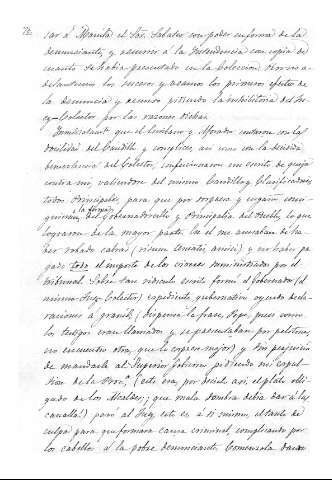 sar á Manila el Sor. Sabater con poder en forma de la
denunciante, y recurrir á la Intendencia con copia de
cuanto se había presentado en la Coleccion. Vieron a-
delantarse los sucesos y veamos los primeros efectos de
la denuncia y recurso pidiendo la inhibitoria del Ju-
ez-Colector por las razones dichas.
que el Escribano y Aforador contaron con la
docilidad del Caudillo y complices, así como con la decidida
benevolencia del Colector, confeccionaron un escrito de queja
contra mí, valiendose del mismo Caudillo y Clasificadores
todos Principales, para que por sorpresa y engaño consi-
guieran la firma del Gobernadorcillo y Principalía del Pueblo, lo que
lograron de la mayor parte. En él me acusaban de ha-
ber robado cabras (risum teneatis amici) y no haber pa-
gado todo el importe de los víveres suministrados por el
tribunal. Sobre tan ridículo escrito formó el Gobernador (el
mismo Juez Colector) expediente gubernativo oyendo decla-
raciones á granel; (dispense la frase, Pepe, pues como
los testigos eran llamados y se presentaban por pelotones,
no encuentro otra que lo exprese mejor) y sin perjuicio
de mandarle al Superior Gobierno pidiendo mi expul-
sion de la Prova. (esta era, por decirlo así, el plato obli-
gado de los Alcaldes; ¡que mala sombra debía dar á la
canalla!) pasó al Juez, esto es á sí mismo, el tanto de
culpa para que formara causa criminal, complicando por
los cabellos á la pobre denunciante. Comenzola